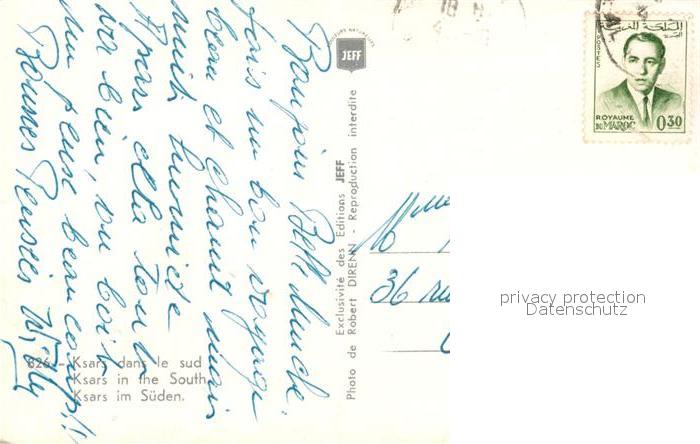 Bonjour
fais un bon voyage
beau et chaud mais
nuit humide
Après cela tout
va bien, on boit
un peu beaucoup!!
Bonnes Pensées Willy
826 - Ksars dans le sud
Ksars in the South
Ksars im Süden.
COULEURS NATURELLES
JEFF
Exclusivité des Editions JEFF
Photo de Robert DIRENN - Reproduction interdite
Mlle
36 rue
18 H
4
POSTES
المملكة المغربية
البريد
ROYAUME
DU MAROC
0,30
privacy protection
Datenschutz